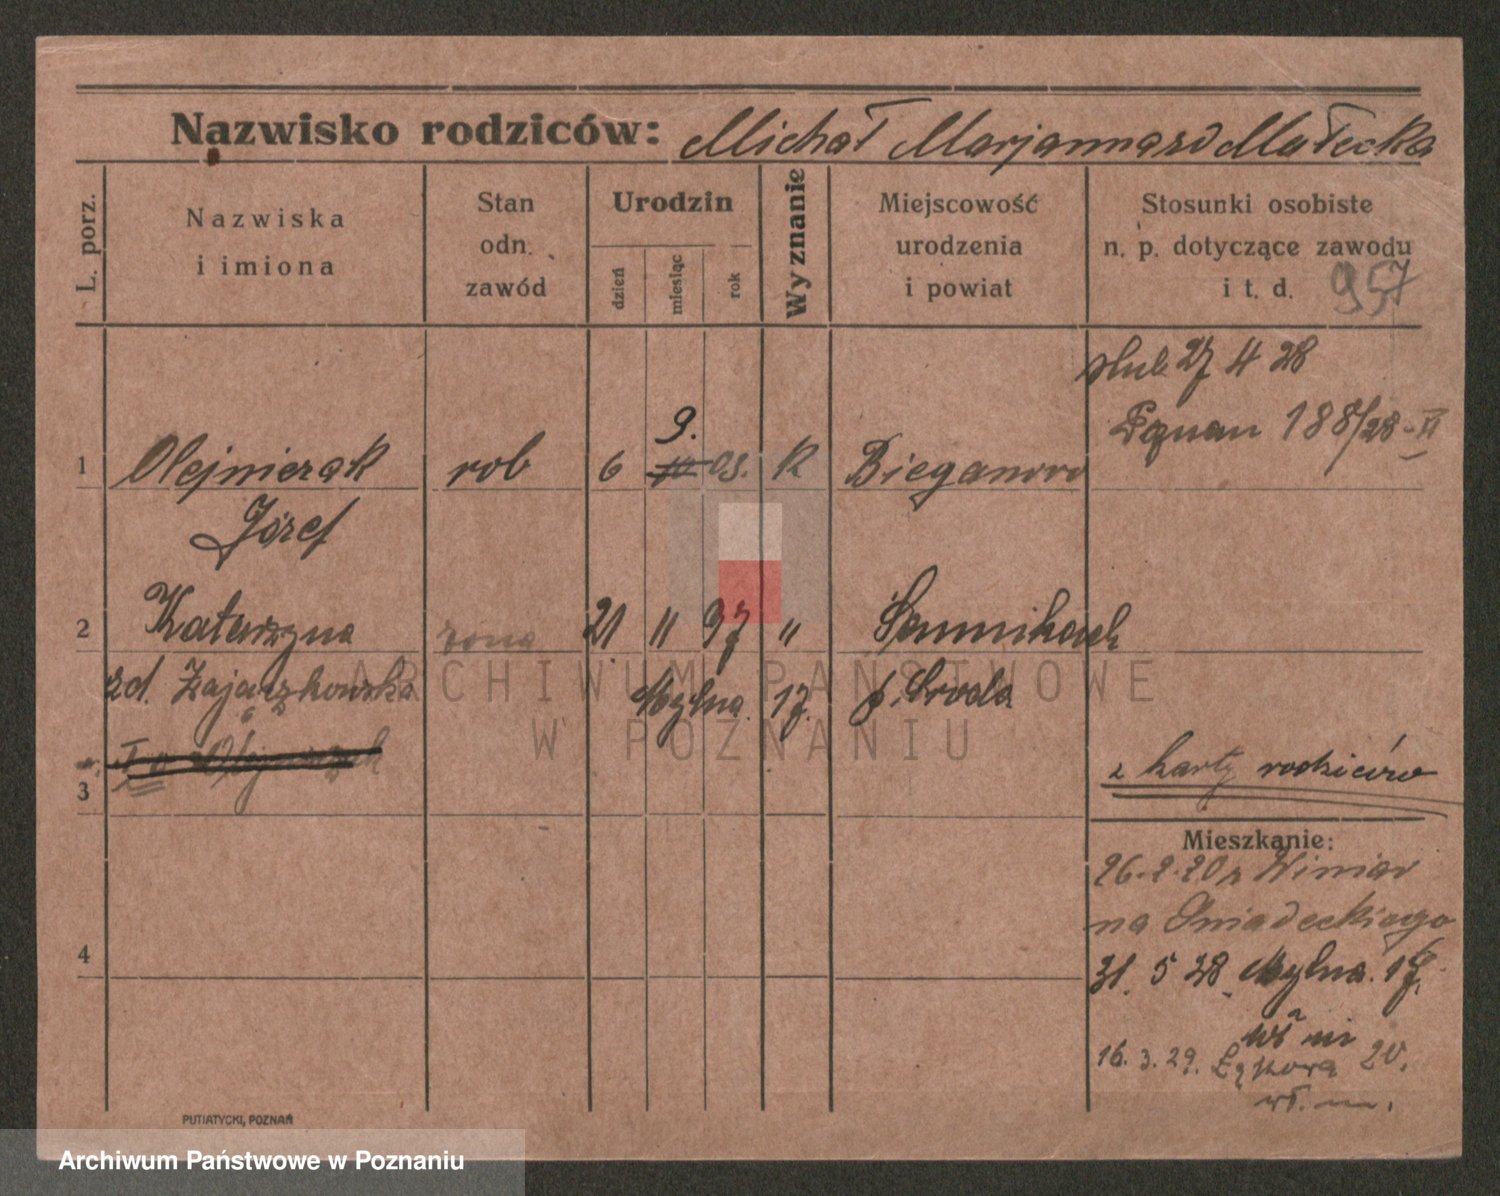 Nazwisko rodziców: Michał Marjanna zd Małecka
L. porz.
Nazwiska
i imiona
Stan
odn.
zawód
Urodzin
dzień
miesiąc
rok
Wyznanie
Miejscowość
urodzenia
i powiat
Stosunki osobiste
n. p. dotyczące zawodu
i t. d.
957
ślub 27 4 28
Poznań 188/28-II
1 Olejniczak rob 6 9. 10 08. k Bieganowo
Józef
2 Katarzyna żona 21 11 97 " Sannikach
zd. Zajączkowska Mylna 17. p. Środa
3
z karty rodziców
Mieszkanie:
26.2.20 z Winiar
na Śniadeckiego
4
31. 5 28 Mylna 17.
16.3.29. Łąkowa 20.
PUTIATYCKI, POZNAŃ
ARCHIWUM PAŃSTWOWE
W POZNANIU
Archiwum Państwowe w Poznaniu